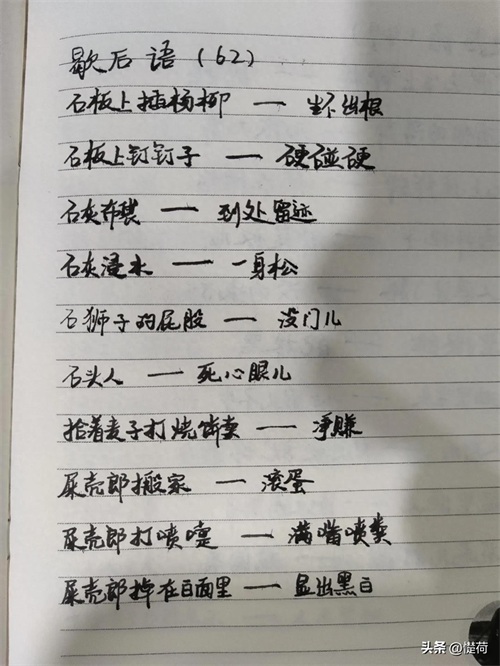 歇后语(62)
石板上插杨柳 — 生不出根
石板上钉钉子 — 硬碰硬
石灰布袋 — 到处留迹
石灰浸水 — 一身松
石狮子的屁股 — 没门儿
石头人 — 死心眼儿
拾着麦子打烧饼卖 — 净赚
屎壳郎搬家 — 滚蛋
屎壳郎打喷嚏 — 满嘴喷粪
屎壳郎掉在白面里 — 显出黑白
头条 @楚荷